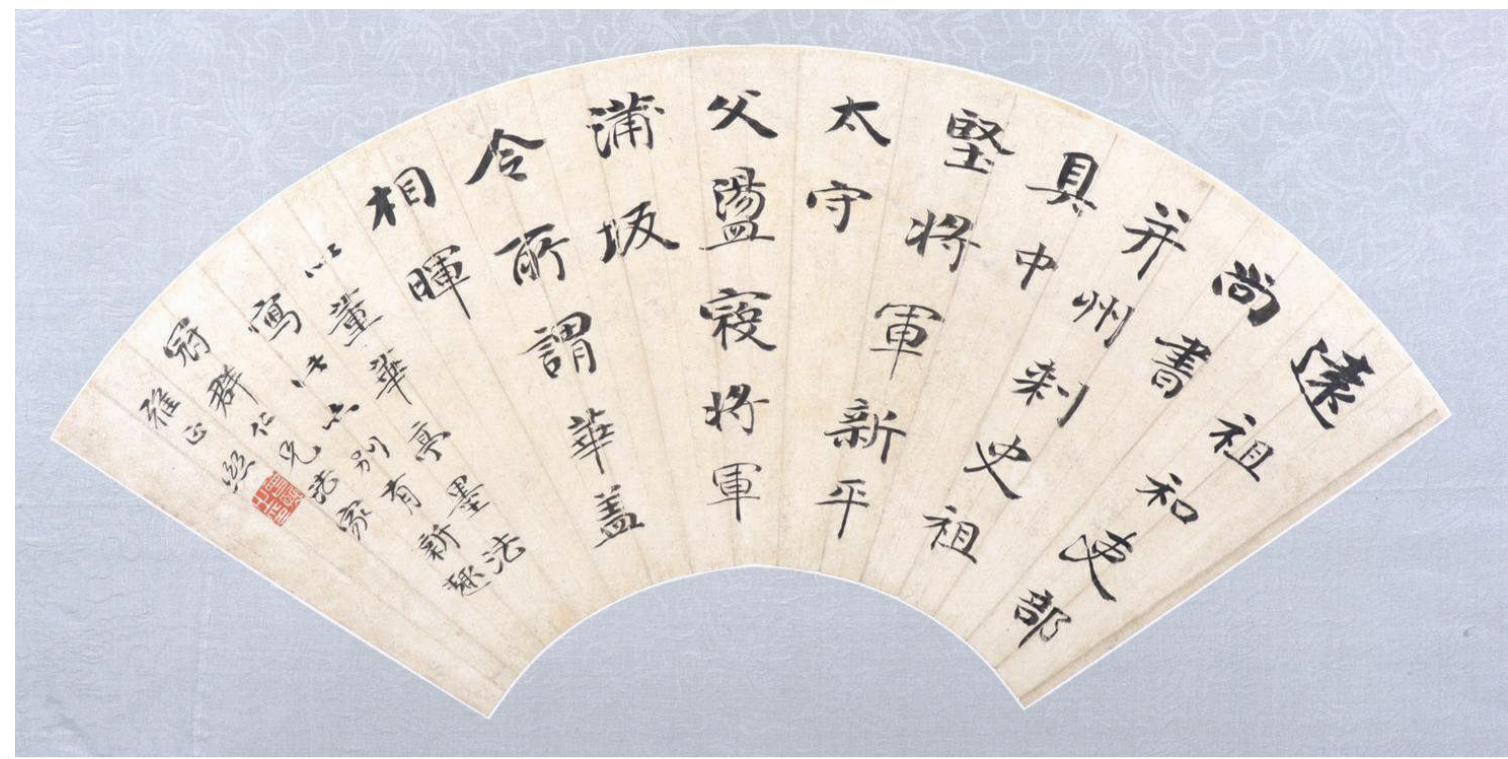 遠祖和吏部
尚書
并州刺史祖
具中
堅將軍新平
太守
父盪寇將軍
蒲坂
令所謂華蓋
相暉
以董華亭墨法
寫別有新趣
冠群仁兄法家
雅正 熙